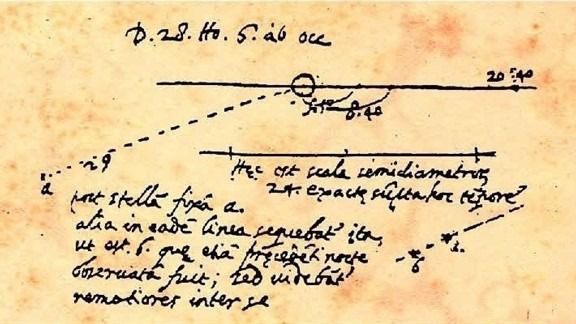 D. 28. Ho. 6. ab occ
20 40
8.40
29
a
Hęc est scala semidiametroꝝ
24. exacte sūpta hoc tēpore
post stellā fixā a.
alia in eadē linea sequebatʳ ita,
ut est b. quę etiā pręcedēti nocte
b
observata fuit; sed videbātʳ
remotiores inter se